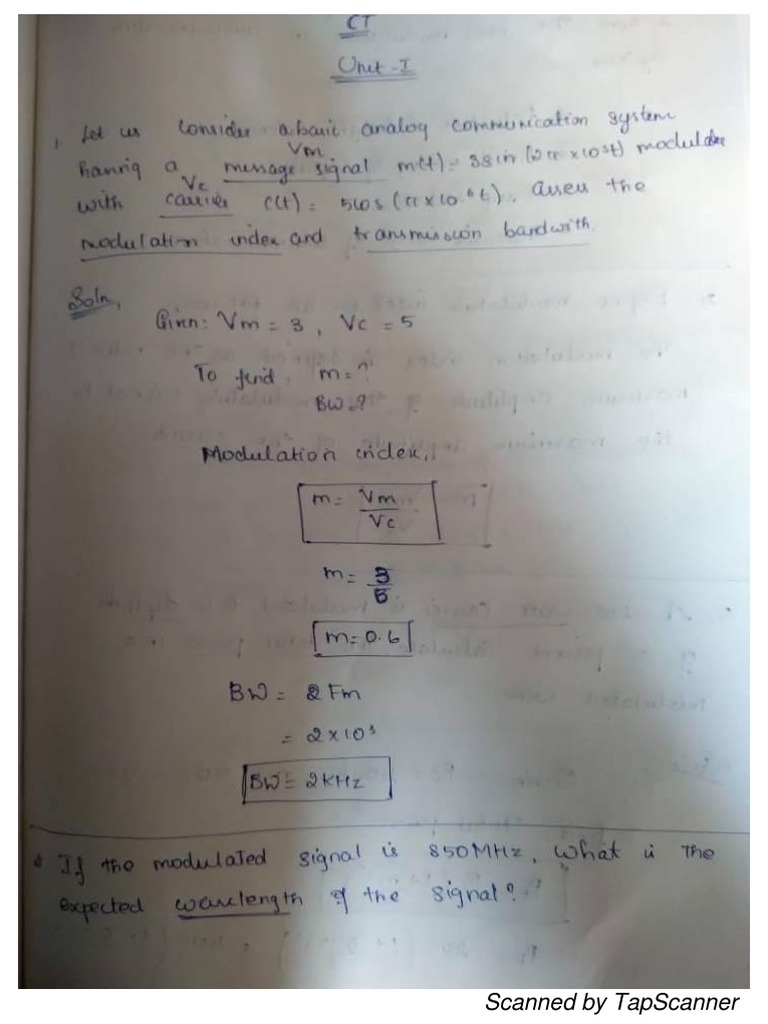 CT
Unit - I
1. Let us consider a basic analog communication system
Vm
having a message signal m(t) = 3sin (2π × 10³t) modulated
Vc
with carrier c(t) = 5cos (π × 10⁻⁶t). Asses the
modulation index and transmission bandwith.
Soln,
Given: Vm = 3, Vc = 5
To find: m = ?
BW = ?
Modulation index,
m = Vm
Vc
m = 3
5
m = 0.6
BW = 2 Fm
= 2 × 10³
BW = 2 KHz
If the modulated signal is 850MHz, what is the
expected wavelength of the signal?
Scanned by TapScanner